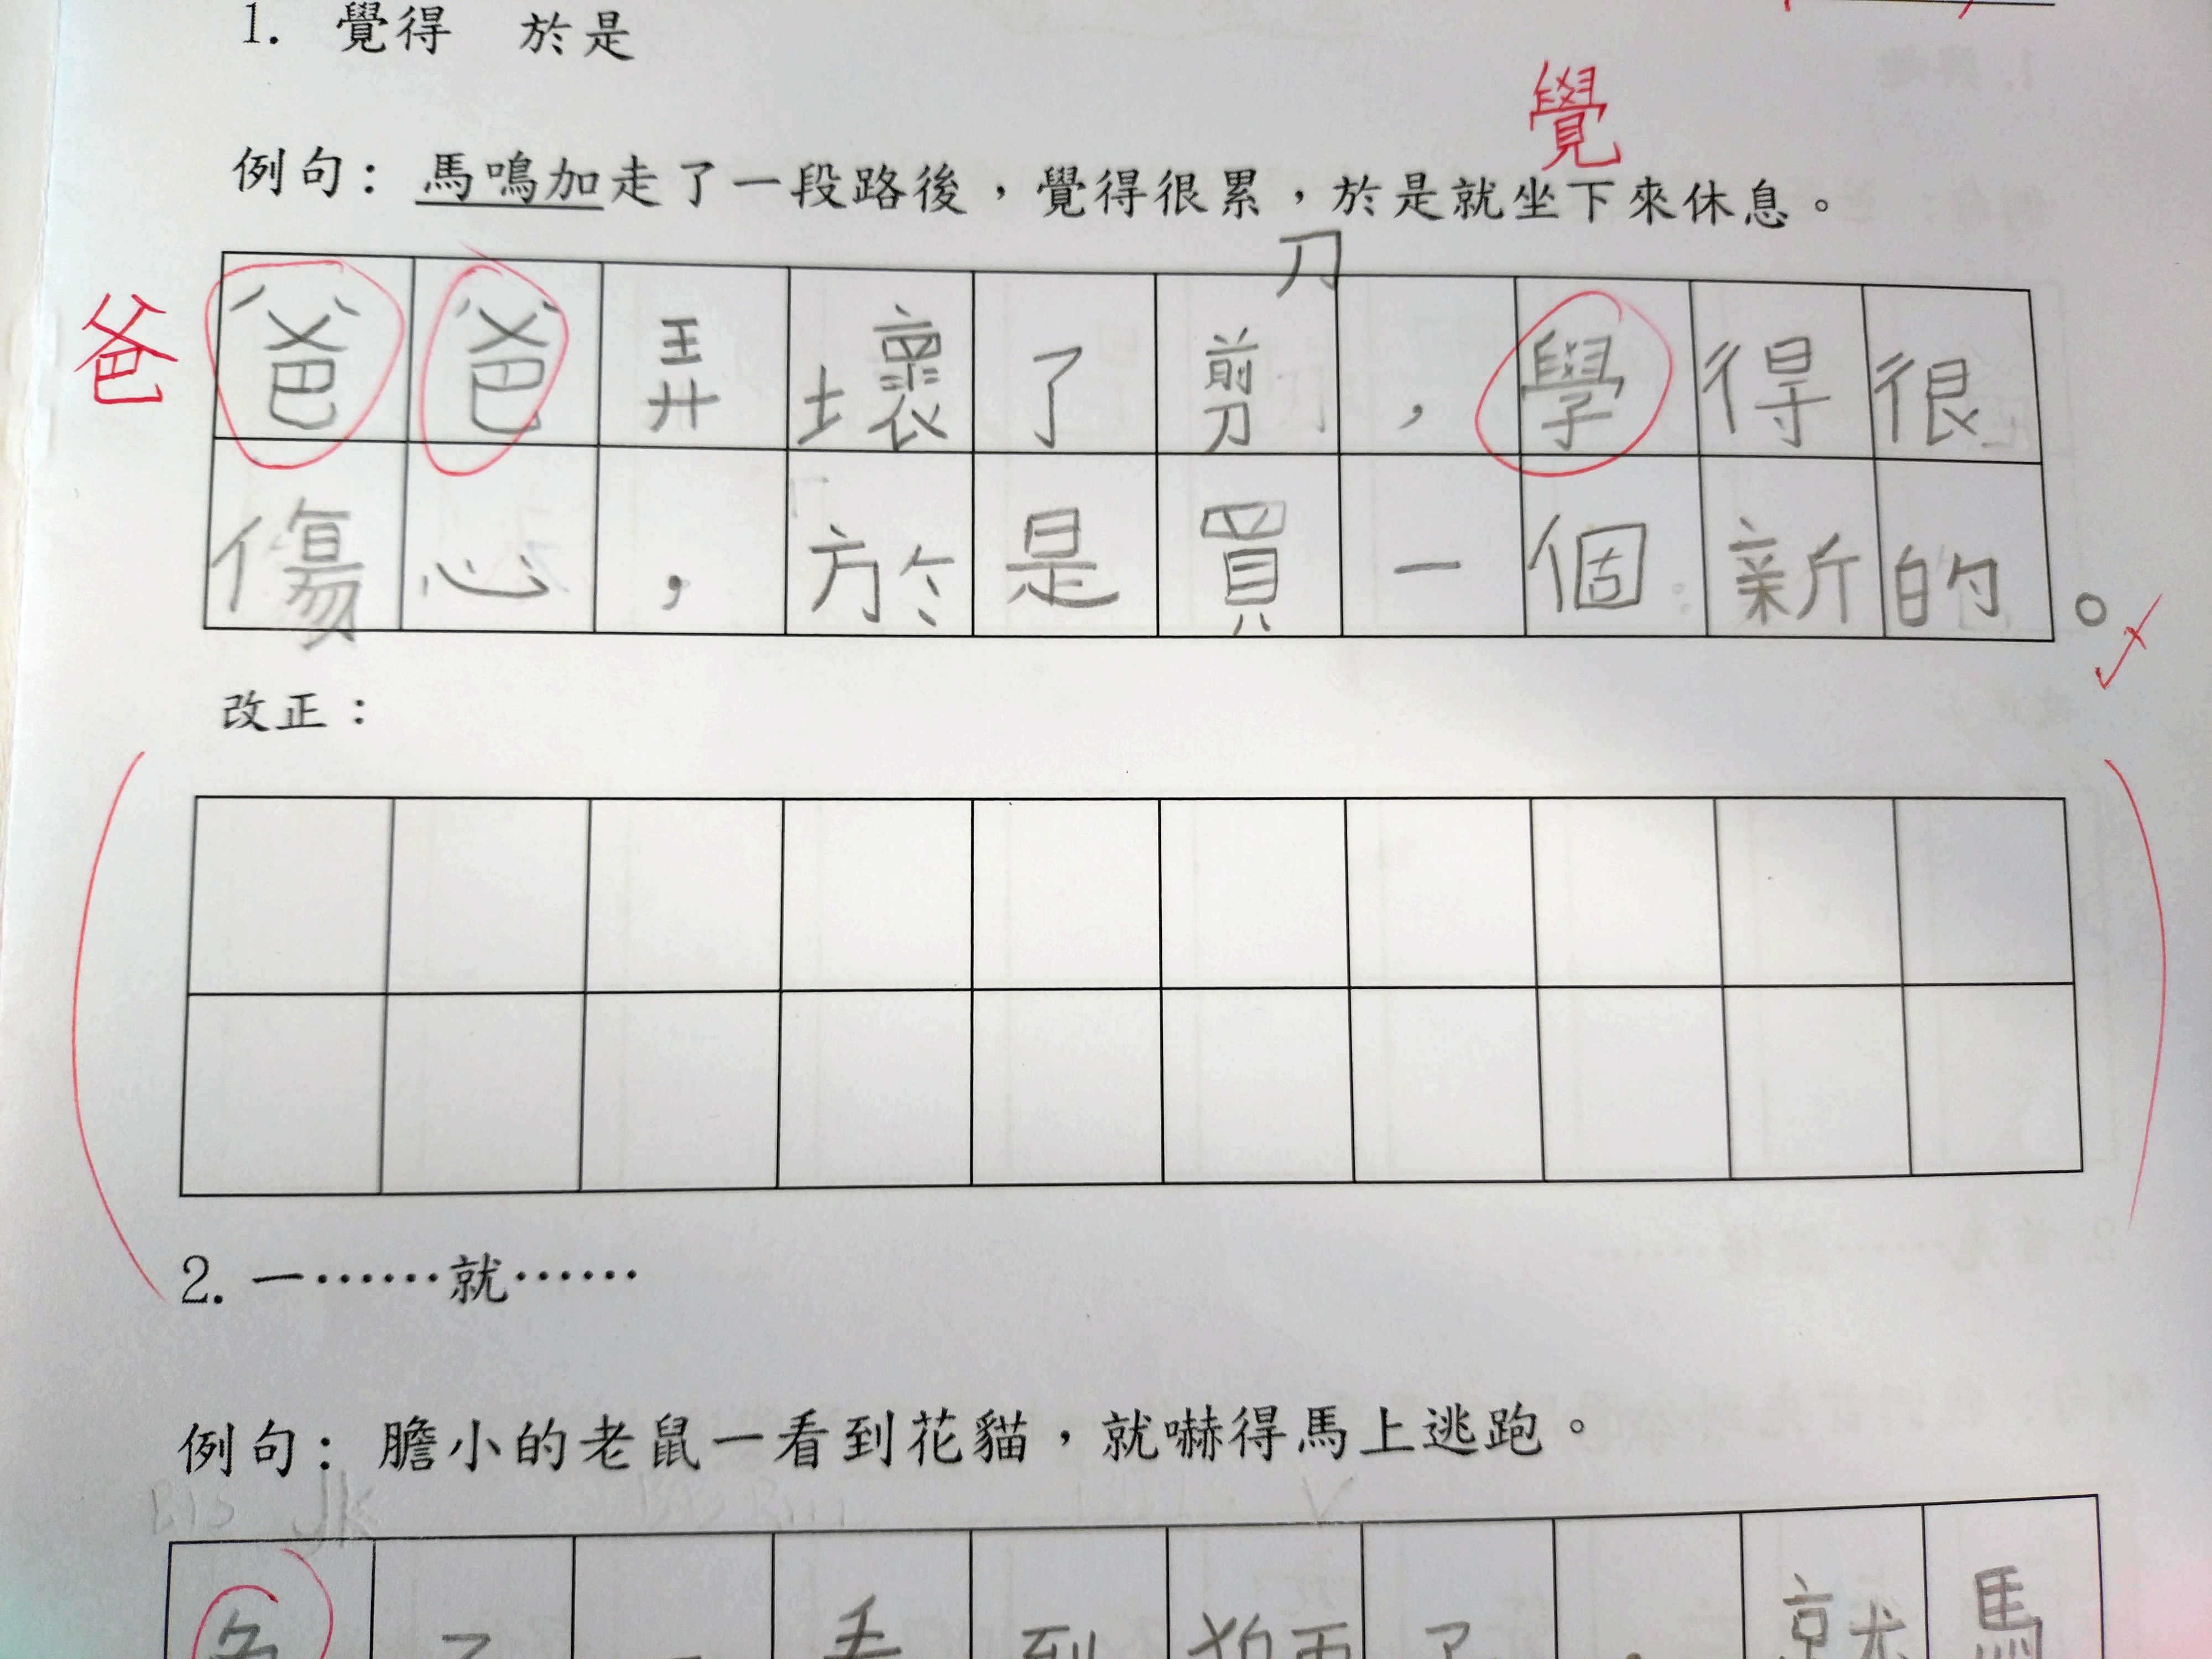 1. 覺得 於是
覺
例句：馬鳴加走了一段路後，覺得很累，於是就坐下來休息。
刀
爸 爸爸弄壞了剪，學得很
傷心，於是買一個新的。
改正：
2. 一……就……
例句：膽小的老鼠一看到花貓，就嚇得馬上逃跑。
看到 了，就馬